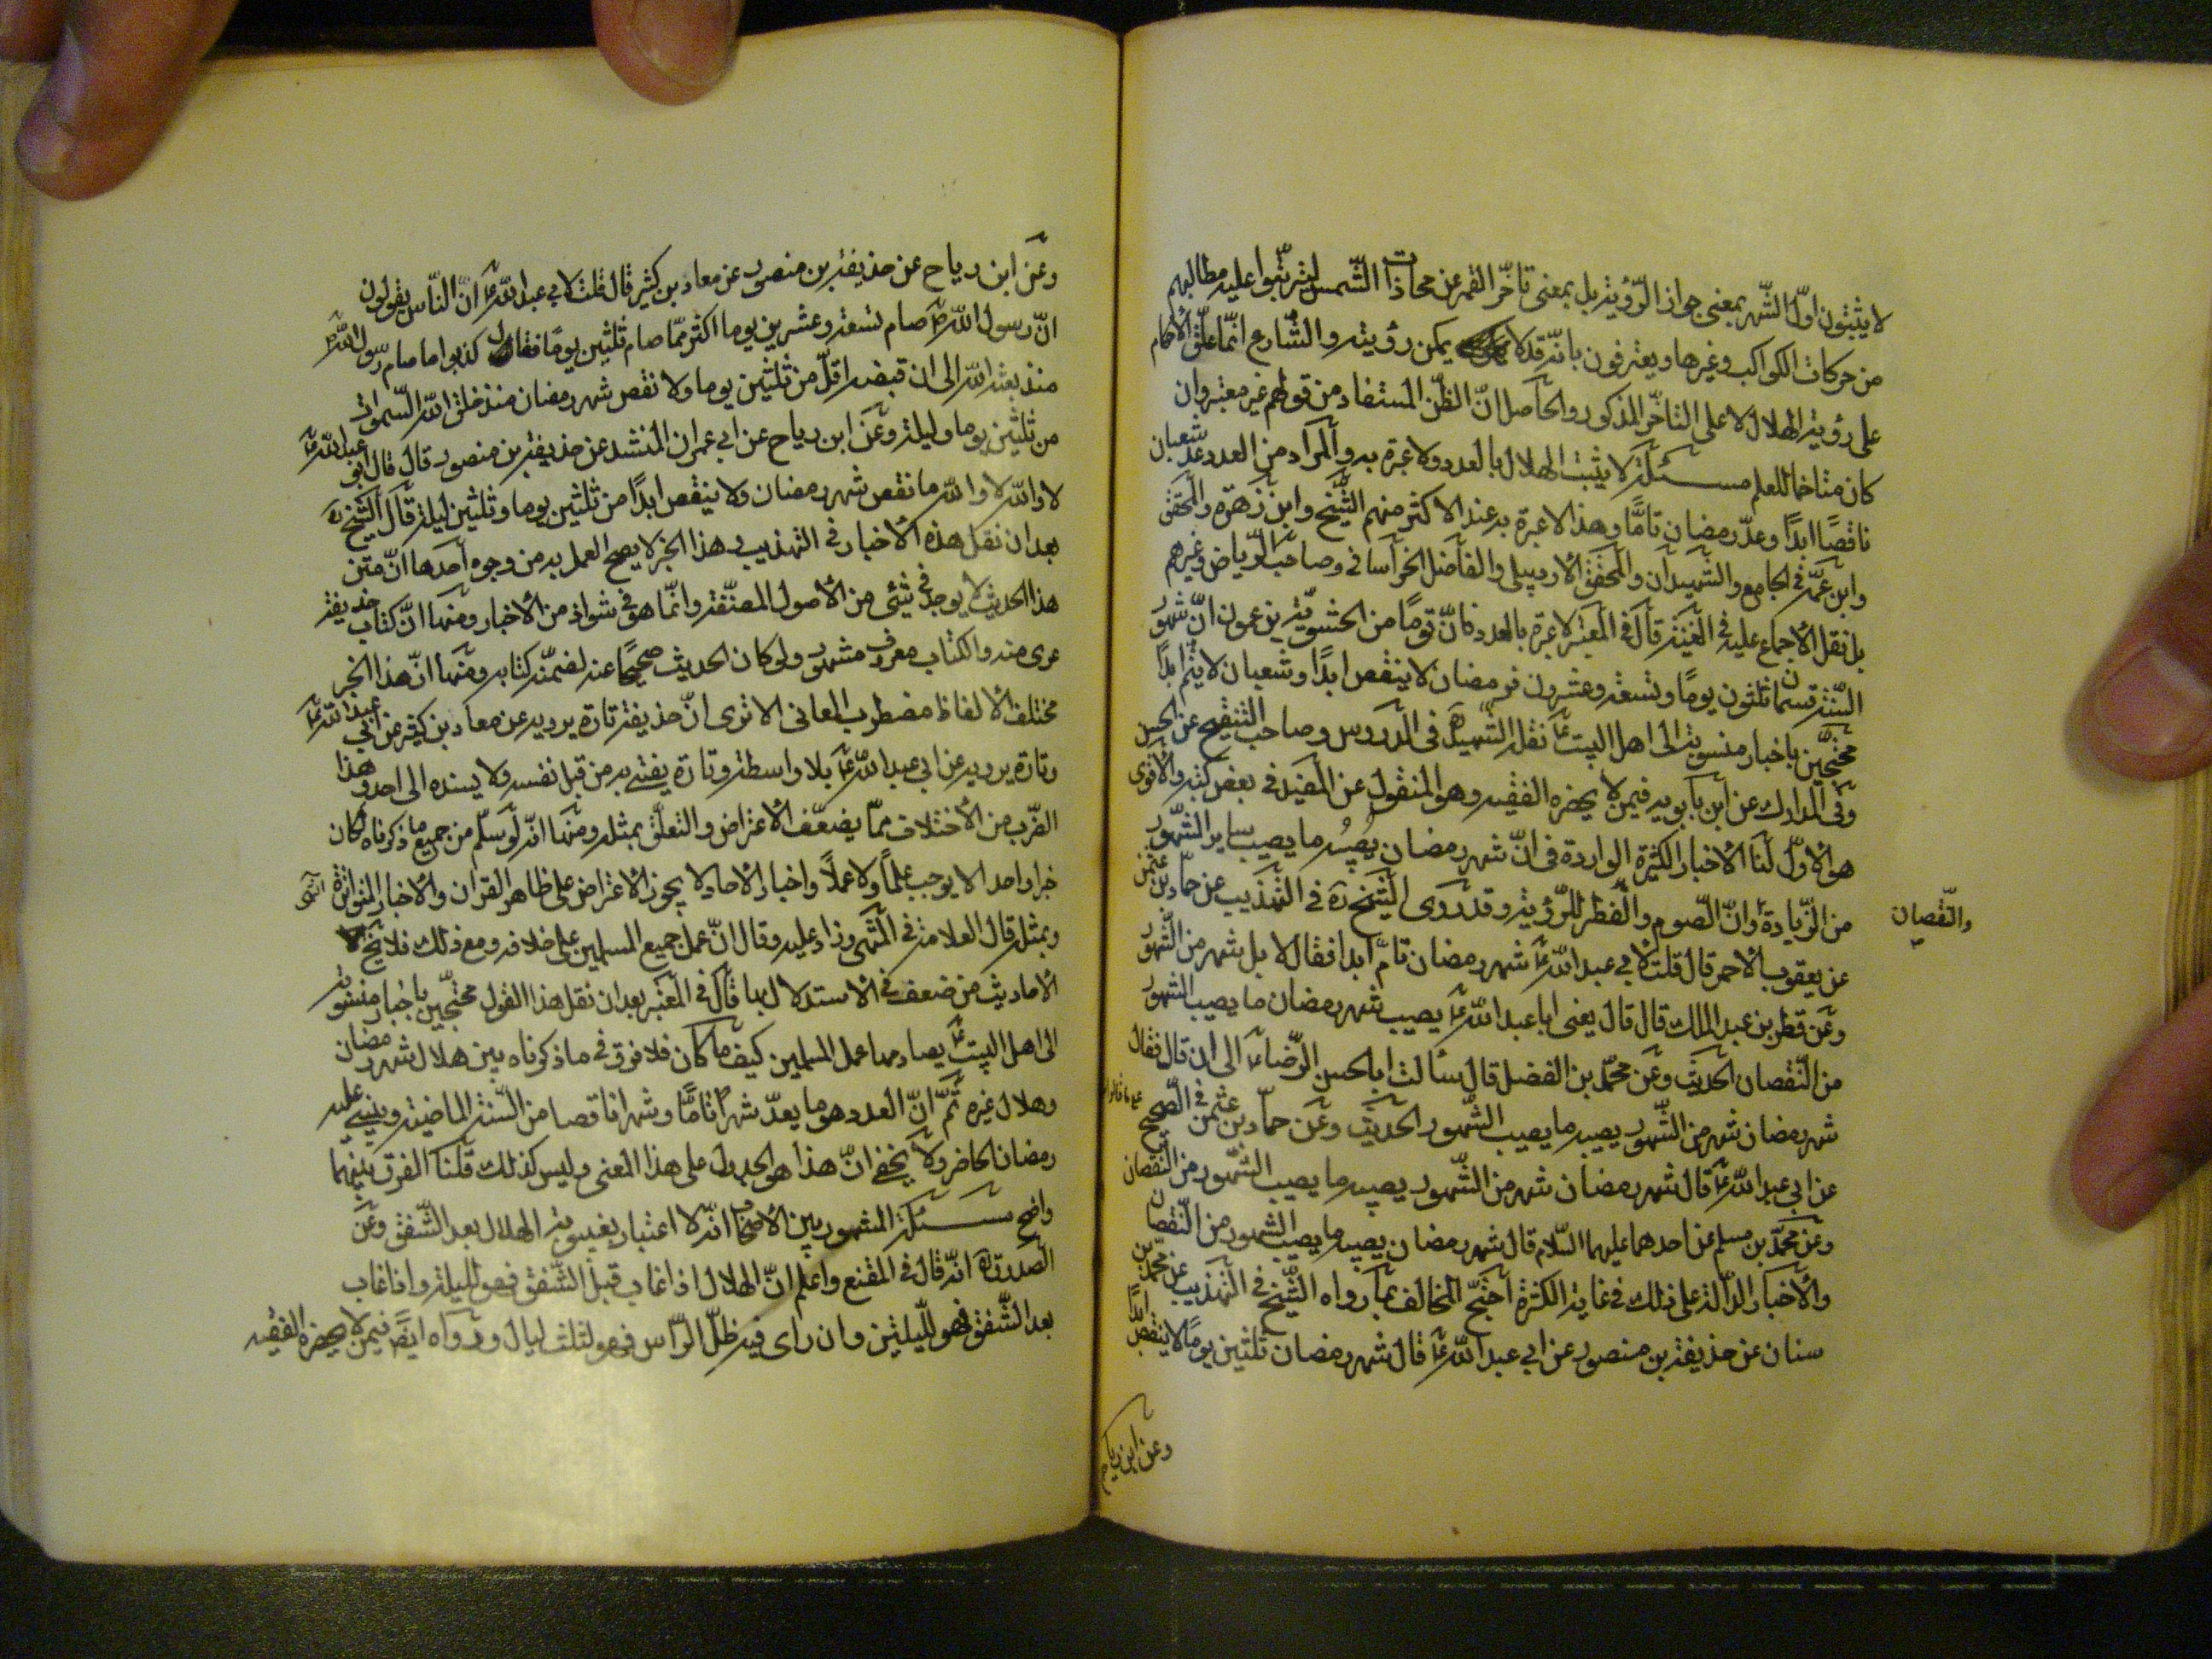 لا يثبتون اوّل الشّهر بمعنى جواز الرّؤية بل بمعنى تاخّر القمر عن محاذات الشّمس ليترتّبوا عليه مطالبهم
من حركات الكواكب وغيرها ويعترفون بانّه قد لا يمكن رؤيته والشّارع انّما علّق الأحكام
على رؤية الهلال لا على التاخّر المذكور والحاصل انّ الظنّ المستفاد من قولهم غير معتبر وان
كان متاخما للعلم مسئلة لا يثبت الهلال بالعدد ولا عبرة به والمراد من العدد عدّ شعبان
ناقصًا ابدًا وعدّ رمضان تامًّا وهذا لا عبرة به عند الاكثر منهم الشّيخ وابن زهرة والمحقق
وابن عمّه في الجامع والشهيدان والمحقق الأردبيلى والفاضل الخراسانى وصاحب الرّياض وغيرهم
بل نقل الأجماع عليه في الغنية قال في المعتبر لا عبرة بالعدد فانّ قومًا من الحشويّة يزعمون انّ شهور
السّنة قسمان ثلثون يومًا وتسعة وعشرون فرمضان لا ينقص ابدًا وشعبان لا يتمّ ابدًا
محتجّين باخبار منسوبة الى اهل البيت ع نقله الشّهيد ره في الدّروس وصاحب التنقيح عن الحسن
وفي المدارك عن ابن بابويه فيمن لا يحضره الفقيه وهو المنقول عن المفيد في بعض كتبه والأقوى
هو الأوّل لنا الأخبار الكثيرة الواردة في انّ شهر رمضان يصيبه ما يصيب ساير الشّهور
من الزّيادة وانّ الصّوم والفطر للرّؤية وقد روى الشّيخ ره في التهذيب عن حمّاد بن عثمن
والنّقصان
عن يعقوب الأحمر قال قلت لأبي عبد اللّه ع شهر رمضان تامّ ابدا فقال لا بل شهر من الشّهور
وعن قطر بن عبد الملك قال قال يعنى ابا عبد اللّه ع يصيب شهر رمضان ما يصيب الشهور
من النّقصان الحديث وعن محمّد بن الفضيل قال سألت ابا الحسن الرّضا ع الى ان قال فقال
شهر رمضان شهر من الشّهور يصيبه ما يصيب الشّهور الحديث وعن حمّاد بن عثمن في الصّحيح
عن ابي عبد اللّه ع قال شهر رمضان شهر من الشّهور يصيبه ما يصيب الشّهور من النّقصان
وعن محمّد بن مسلم عن احدهما عليهما السّلام قال شهر رمضان يصيبه ما يصيب الشهور من النّقصان
والأخبار الدّالة على ذلك في غاية الكثرة احتجّ المخالف بما رواه الشّيخ في التهذيب عن محمّد بن
سنان عن حذيفة بن منصور عن ابي عبد اللّه ع قال شهر رمضان ثلثين يومًا لا ينقص ابدًا
وعن ابن رياح
وعن ابن رياح عن حذيفة بن منصور عن معاذ بن كثير قال قلت لابي عبد اللّه ع انّ النّاس يقولون
انّ رسول اللّه ص صام تسعة وعشرين يوما اكثر ممّا صام ثلثين يومًا فقال كذبوا ما صام رسول اللّه ص
منذ بعثه اللّه الى ان قبضه اقلّ من ثلثين يوما ولا نقص شهر رمضان منذ خلق اللّه السّموات
من ثلثين يوما وليلة وعن ابن رياح عن ابي عمران المنشد عن حذيفة بن منصور قال قال ابو عبد اللّه ع
لا واللّه لا واللّه ما نقص شهر رمضان ولا ينقص ابدًا من ثلثين يوما وثلثين ليلة قال الشّيخ ره
بعد ان نقل هذه الأخبار في التهذيب وهذا الخبر لا يصح العمل به من وجوه احدها انّ متن
هذا الحديث لا يوجد في شئى من الأصول المصنّفة وانّما هو في شواذ من الأخبار ومنها انّ كتاب حذيفة
عرى منه والكتاب معروف مشهور ولو كان الحديث صحيحًا عنه لضمنّه كتابه ومنها انّ هذا الخبر
مختلف الألفاظ مضطرب المعانى الا ترى انّ حذيفة تارة يرويه عن معاذ بن كثير عن ابي عبد اللّه ع
وتارة يرويه عن ابي عبد اللّه ع بلا واسطة وتارة يفتى به من قبل نفسه ولا يسنده الى احد وهذا
الضّرب من الأختلاف ممّا يضعّف الأعتراض والتعلّق بمثله ومنها انّه لو سلّم من جميع ما ذكرناه لكان
خبرا واحدا لا يوجب علمًا ولا عملًا واخبار الأحاد لا يجوز الأعتراض على ظاهر القران والأخبار المتواترة انتهى
وبمثله قال العلامة في المنتهى وزاد عليه وقال انّ عمل جميع المسلمين على خلافه ومع ذلك فلا يخ
الأحاديث من ضعف في الأستدلال بها قال في المعتبر بعد ان نقل هذا القول محتجّين باخبار منسوبة
الى اهل البيت ع يصادمها عمل المسلمين كيف ما كان فلا فرق في ما ذكرناه بين هلال شهر رمضان
وهلال غيره ثمّ انّ العدد هو ما يعدّ شهرًا تامًّا وشهرا ناقصا من السّنة الماضية ويبنى عليه
رمضان الحاضر ولا يخفى انّ هذا هو الجدول على هذا المعنى وليس كذلك قلنا الفرق بينهما
واضح مسئلة المشهور بين الأصحاب انّه لا اعتبار بغيبوبة الهلال بعد الشّفق وعن
الصّدوق ره انّه قال في المقنع واعلم انّ الهلال اذا غاب قبل الشّفق فهو لليلة واذا غاب
بعد الشّفق فهو لليلتين وان راى فيه ظلّ الرّاس فهو لثلث ليال ورواه ايضًا فيمن لا يحضره الفقيه